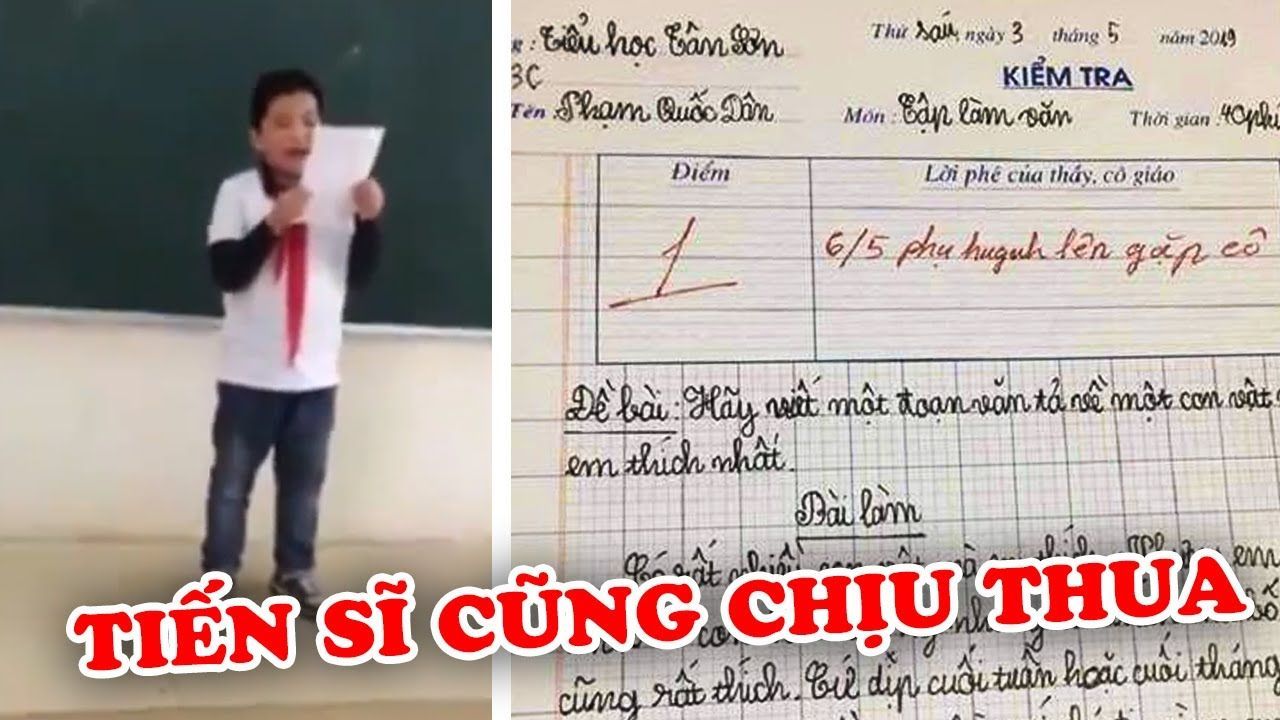 : Tiểu học Tân Sơn
Thứ sáu, ngày 3 tháng 5 năm 2019
3C
KIỂM TRA
Tên Phạm Quốc Dân
Môn: Tập làm văn
Thời gian: 40
Điểm
Lời phê của thầy, cô giáo
1
6/5 phụ huynh lên gặp cô
Đề bài: Hãy viết một đoạn văn tả về một con vật
em thích nhất.
Bài làm
Có rất nhiều em
cũng rất thích. Cứ dịp cuối tuần hoặc cuối tháng
TIẾN SĨ CŨNG CHỊU THUA